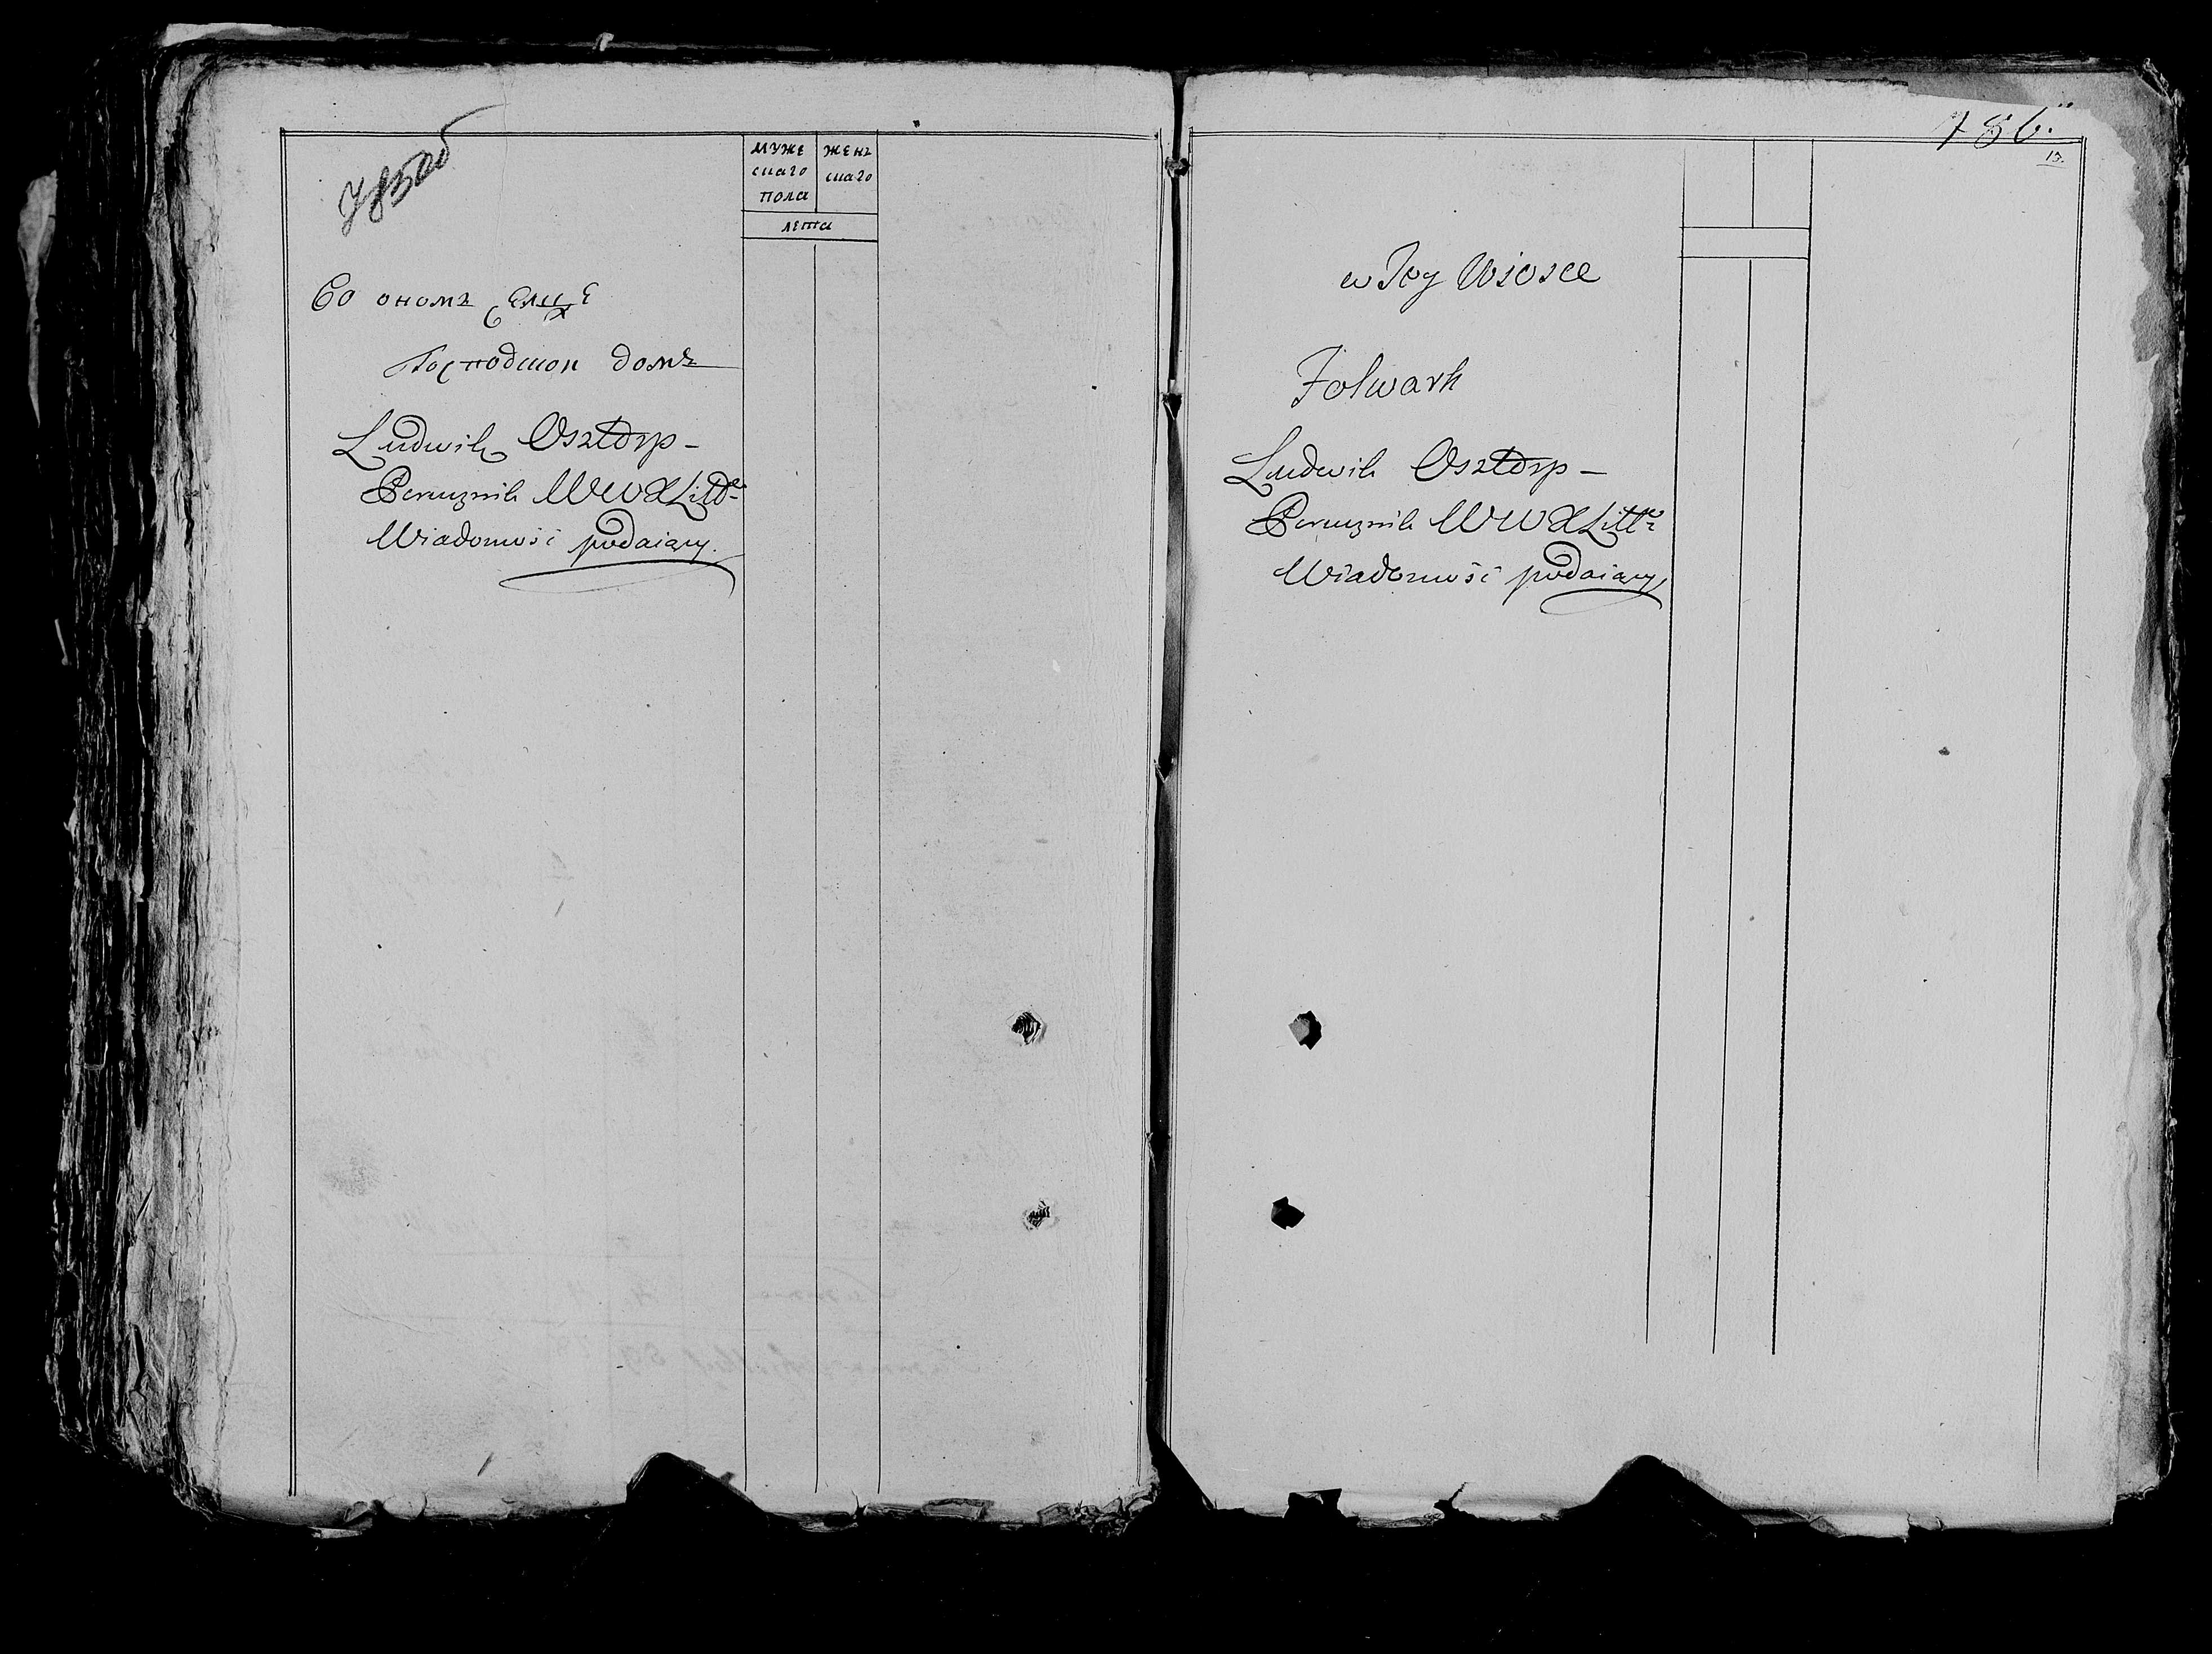 785об
муже жен
скаго скаго
пола
лета
Во ономъ селце
Господской домъ
Ludwik Osztorp –
Porucznik W W X Litt
Wiadomość podaiący.
786.
13.
w Tey Wiosce
Folwark
Ludwik Osztorp –
Porucznik W W X Litt
Wiadomość podaiący